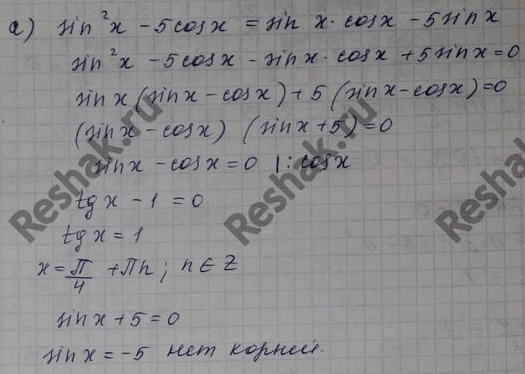 a) sin²x - 5cosx = sin x · cosx - 5sinx
sin²x - 5cosx - sinx · cosx + 5sinx = 0
sinx (sinx - cosx) + 5 (sinx - cosx) = 0
(sinx - cosx) (sinx + 5) = 0
sinx - cosx = 0 | : cosx
tg x - 1 = 0
tg x = 1
x = π/4 + πn ; n ∈ Z
sinx + 5 = 0
sinx = -5 нет корней.
Reshak.ru
Reshak.ru
Reshak.ru